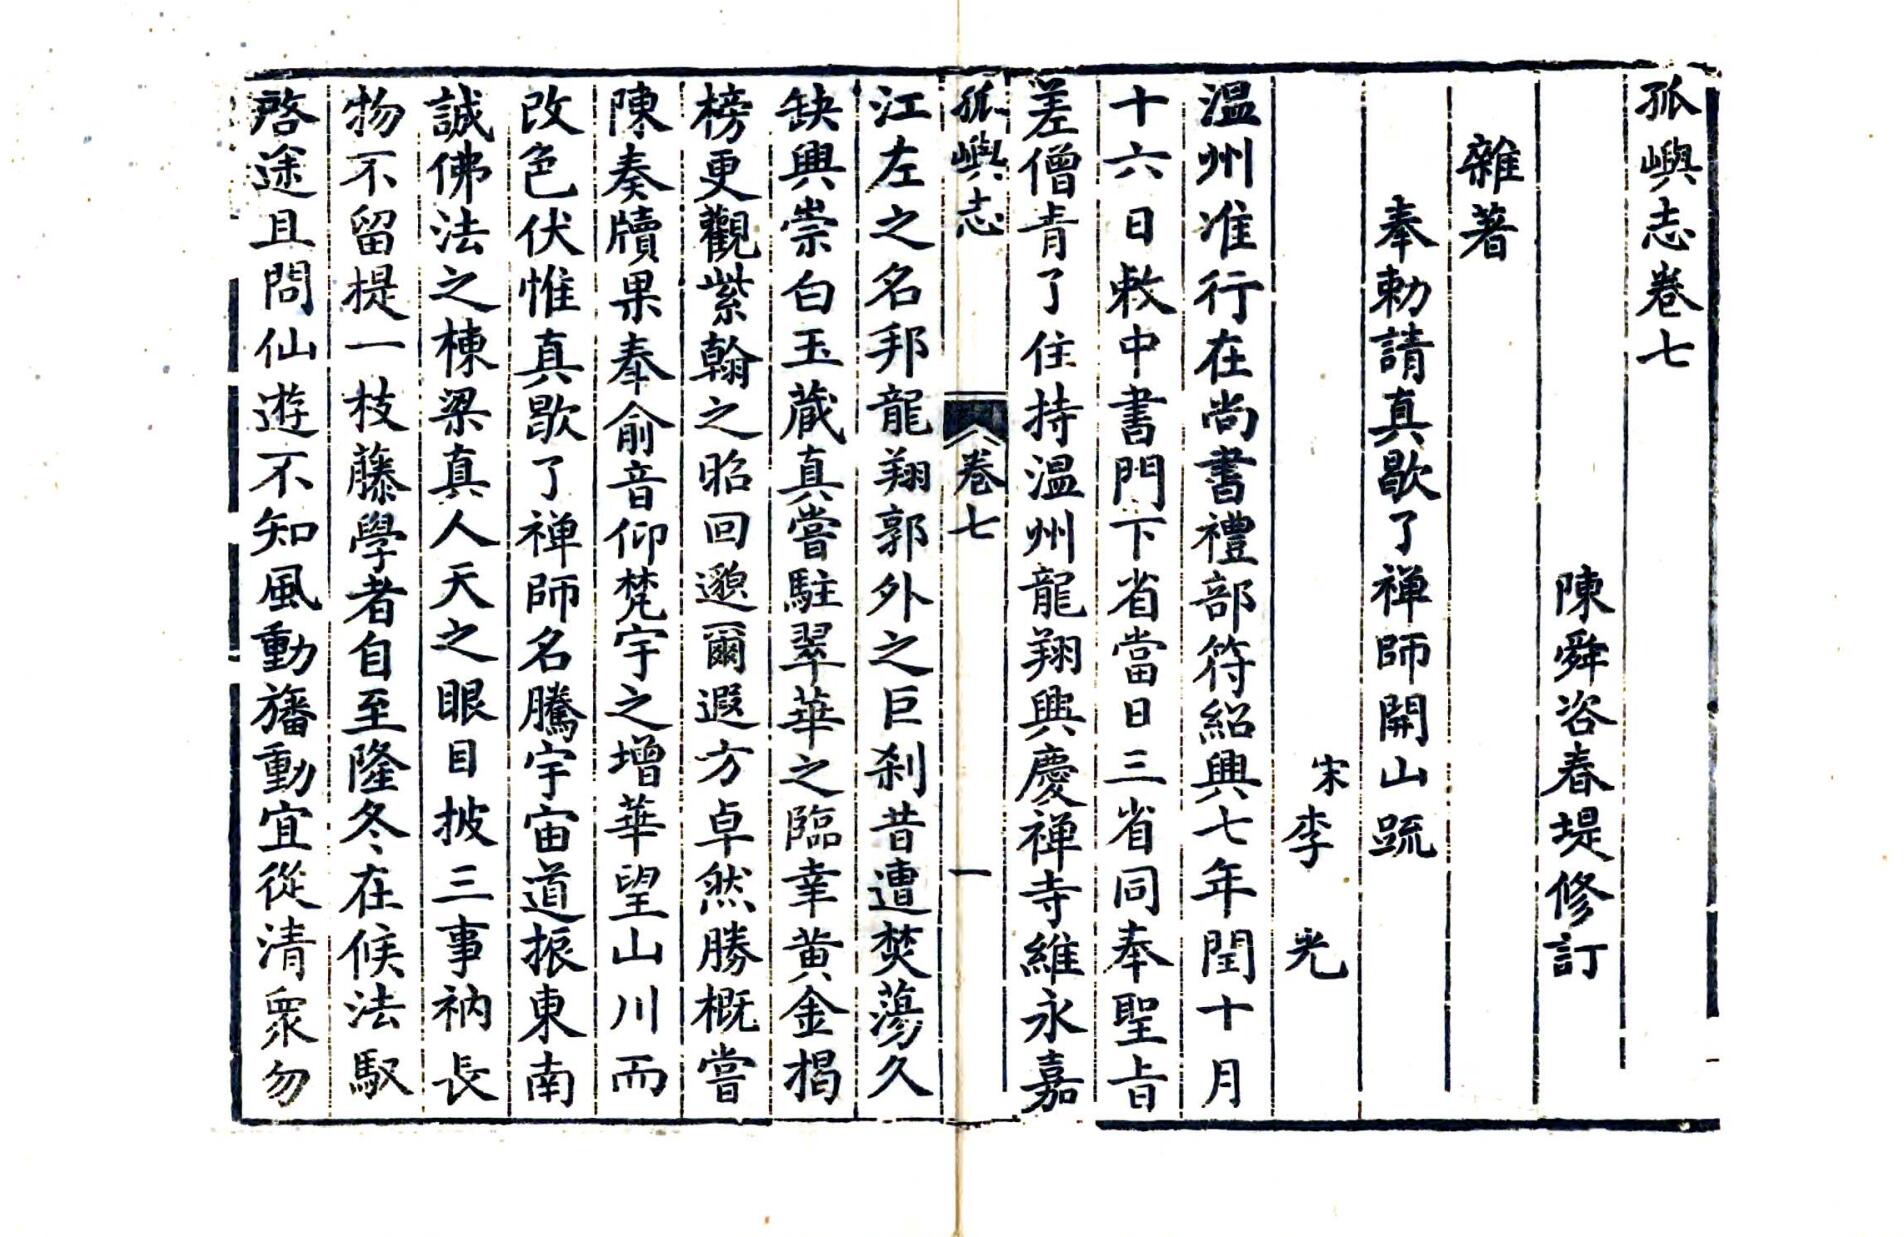 孤嶼志卷七
陳舜咨春堤修訂
雜著
奉勅請真歇了禅師開山疏
宋李光
溫州准行在尚書禮部符紹興七年閏十月
十六日敕中書門下省當日三省同奉聖旨
差僧青了住持溫州龍翔興慶禅寺維永嘉
孤嶼志 卷七 一
江左之名邦龍翔郭外之巨刹昔遭焚蕩久
缺興崇白玉蔵真嘗駐翠華之臨幸黄金揭
榜更觀紫翰之昭回邈爾遐方卓然勝概嘗
陳奏牘果奉俞音仰梵宇之增華望山川而
改色伏惟真歇了禅師名騰宇宙道振東南
誠佛法之棟梁真人天之眼目披三事衲長
物不留提一枝藤學者自至隆冬在候法馭
啓途且問仙遊不知風動旛動宜從清衆勿